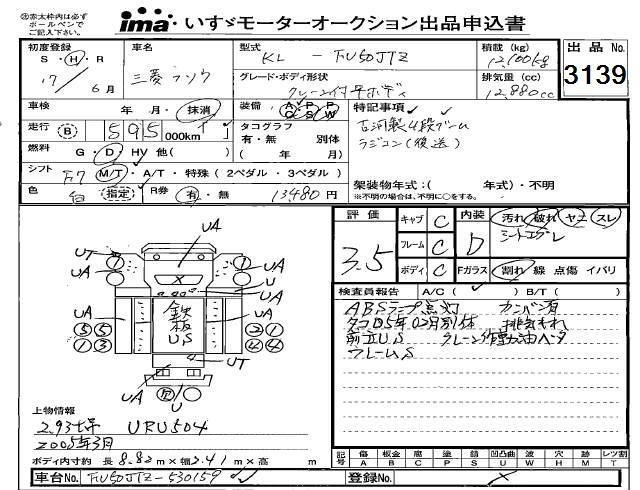 ㊟赤太枠内は必ず
ボールペンで
ご記入下さい。
ima いすゞモーターオークション出品申込書
初度登録 S・H・R 17年 6月
車名 三菱 フソウ
型式 KL - FU50JTZ
積載 (kg) 12,100kg
出品 No. 3139
グレード・ボディ形状 クレーン付平ボディ
排気量 (cc) 12,880cc
車検 年・月・抹消
装備 A/C P/S P/W
特記事項
古河製4段ブーム
ラジコン(後送)
走行 B 595,000km
タコグラフ 有・無 別体 ( 年 月)
燃料 G・D・HV 他( )
シフト F7 M/T・A/T・特殊 (2ペダル・3ペダル)
架装物年式:( 年式)・不明
※不明の場合は、不明に○をする。
色 白 指定 R券 有・無 13,480円
評価 3.5
キャブ C
フレーム C
ボディ C
内装 D
汚れ 破れ ヤニ スレ
シートコゲ
Fガラス 割れ 線 点傷 イバリ
検査員報告 A/C ( ) B/T ( )
ABSランプ点灯 カンバン有
タコD5年02月別体 排気もれ
前立U.S クレーン作動油ベタ
フレームS
UA
UT 1 1 UA
UA U
X
UA 鉄板 U.S UA
5 5 2 1
1 3 4 4
4 UT
UA 欠 UA
U
上物情報
2.93t吊 URU504
2005年3月
ボディ内寸約 長 8.82m×幅 2.41m×高 m
記号 傷A 板金B 腐C 塗P 錆S 凹凸曲U 波W 穴H 跡M レツ割T
車台No. FU50JTZ-530159
登録No. ×